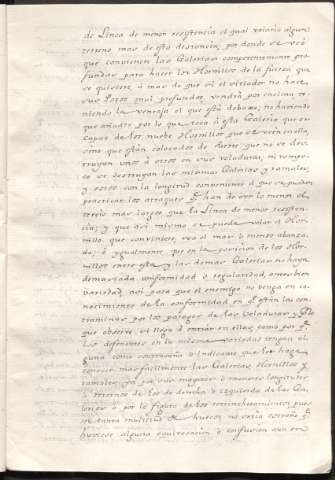 de Linea de menor resistencia el qual volaria algun
terreno mas de esta distancia; por donde se vee
que convienen las Galerias competentemente pro-
fundas para hacer los Hornillos de la fuerza que
se quisiere, a mas de que si el sitiador no hace
sus Pozos mui profundos, vendrà por encima, te-
niendo la ventaja el que està debaxo; no haciendo
que añadir por lo que toca à esta Galeria que es
capaz de los nuebe Hornillos que se veen en ella,
sino que están colocados de suerte que no se des-
truyan unos à otros en sus voladuras, ni tampo-
co se destruyan las mismas Galerias y ramales,
y estos con la longitud conveniente à que se puedan
practicar los ataques qe. han de ser lo menos el
tercio mas largos que la Linea de menor resisten-
cia; y que asi mismo se pueda volar el Hor-
nillo que conviniere, sea el mas ò menos abanza-
do; è igualmente que en la posicion de los Hor-
nillos entre esta y las demas Galerias no haya
demasiada uniformidad ò regularidad, antes bien
variedad, asi para que el enemigo no venga en co-
nocimiento de la conformidad en qe. están las con-
traminas por los parages de las voladuras y
que observe el
los defensores en la misma variedad tengan al-
guna
conocer mas facilmente las Galerias, Hornillos y
ramales, ya por sus mayores ò menores longitudes
ò terrenos de los de derecha ò izquierda de las Ga-
lerias ò por la figura de los
en tanta multitud de huecos, no seria estraño qe.
huviese alguna equivocacion ò confusion aun en-